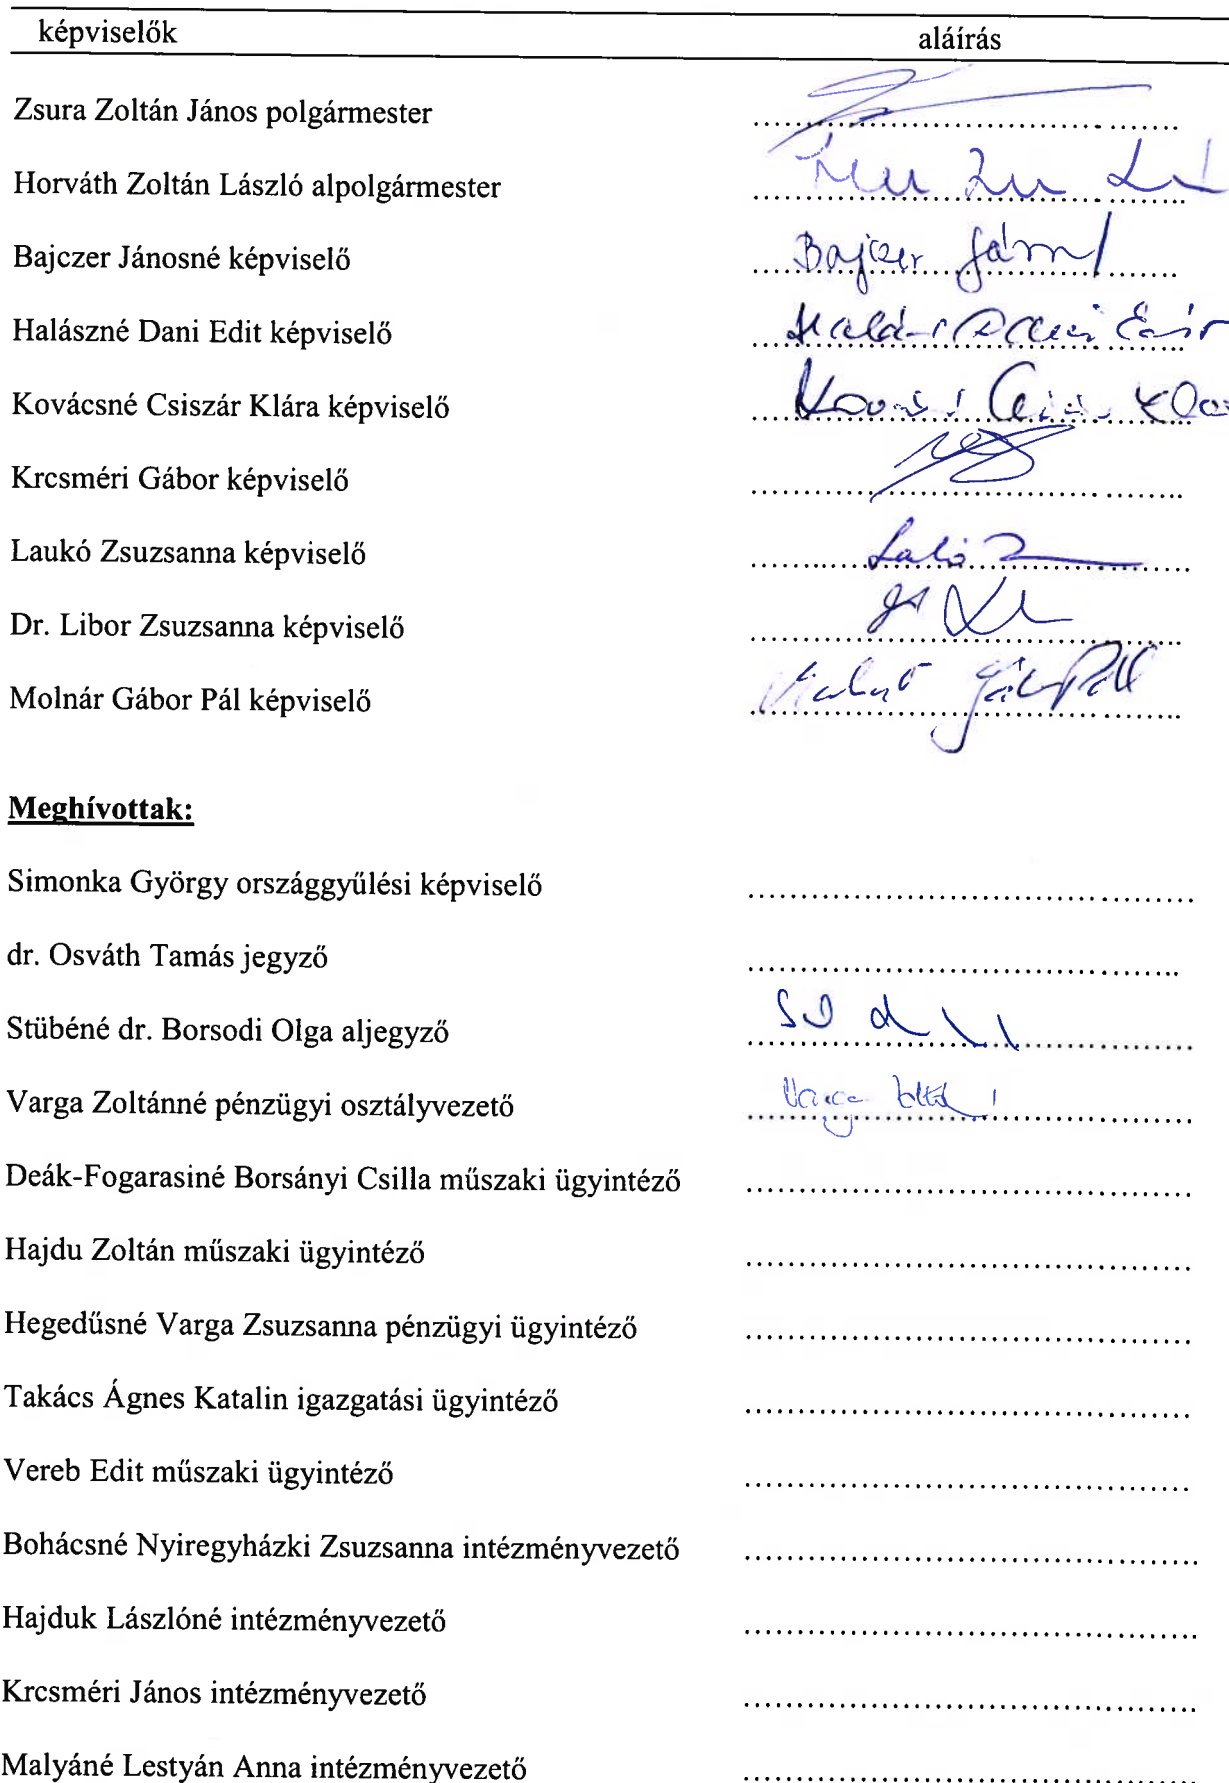 képviselők aláírás
Zsura Zoltán János polgármester ........................................
Horváth Zoltán László alpolgármester ........................................
Bajczer Jánosné képviselő Bajczer
Halászné Dani Edit képviselő ........................................
Kovácsné Csiszár Klára képviselő ........................................
Krcsméri Gábor képviselő ........................................
Laukó Zsuzsanna képviselő ........................................
Dr. Libor Zsuzsanna képviselő ........................................
Molnár Gábor Pál képviselő ........................................
Meghívottak:
Simonka György országgyűlési képviselő ........................................
dr. Osváth Tamás jegyző ........................................
Stübéné dr. Borsodi Olga aljegyző ........................................
Varga Zoltánné pénzügyi osztályvezető ........................................
Deák-Fogarasiné Borsányi Csilla műszaki ügyintéző ........................................
Hajdu Zoltán műszaki ügyintéző ........................................
Hegedűsné Varga Zsuzsanna pénzügyi ügyintéző ........................................
Takács Ágnes Katalin igazgatási ügyintéző ........................................
Vereb Edit műszaki ügyintéző ........................................
Bohácsné Nyiregyházki Zsuzsanna intézményvezető ........................................
Hajduk Lászlóné intézményvezető ........................................
Krcsméri János intézményvezető ........................................
Malyáné Lestyán Anna intézményvezető ........................................